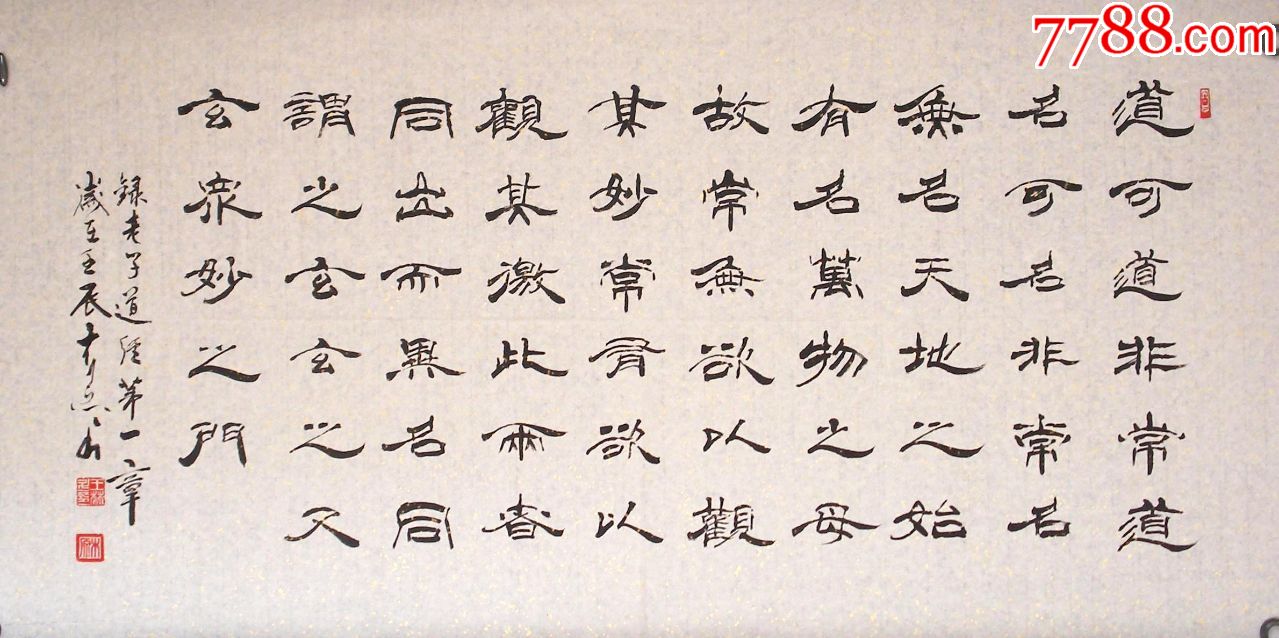 道可道非常道
名可名非常名
無名天地之始
有名萬物之母
故常無欲以觀
其妙常有欲以
觀其徼此兩者
同出而異名同
謂之玄玄之又
玄眾妙之門
錄老子道經第一章
歲在壬辰
7788.com